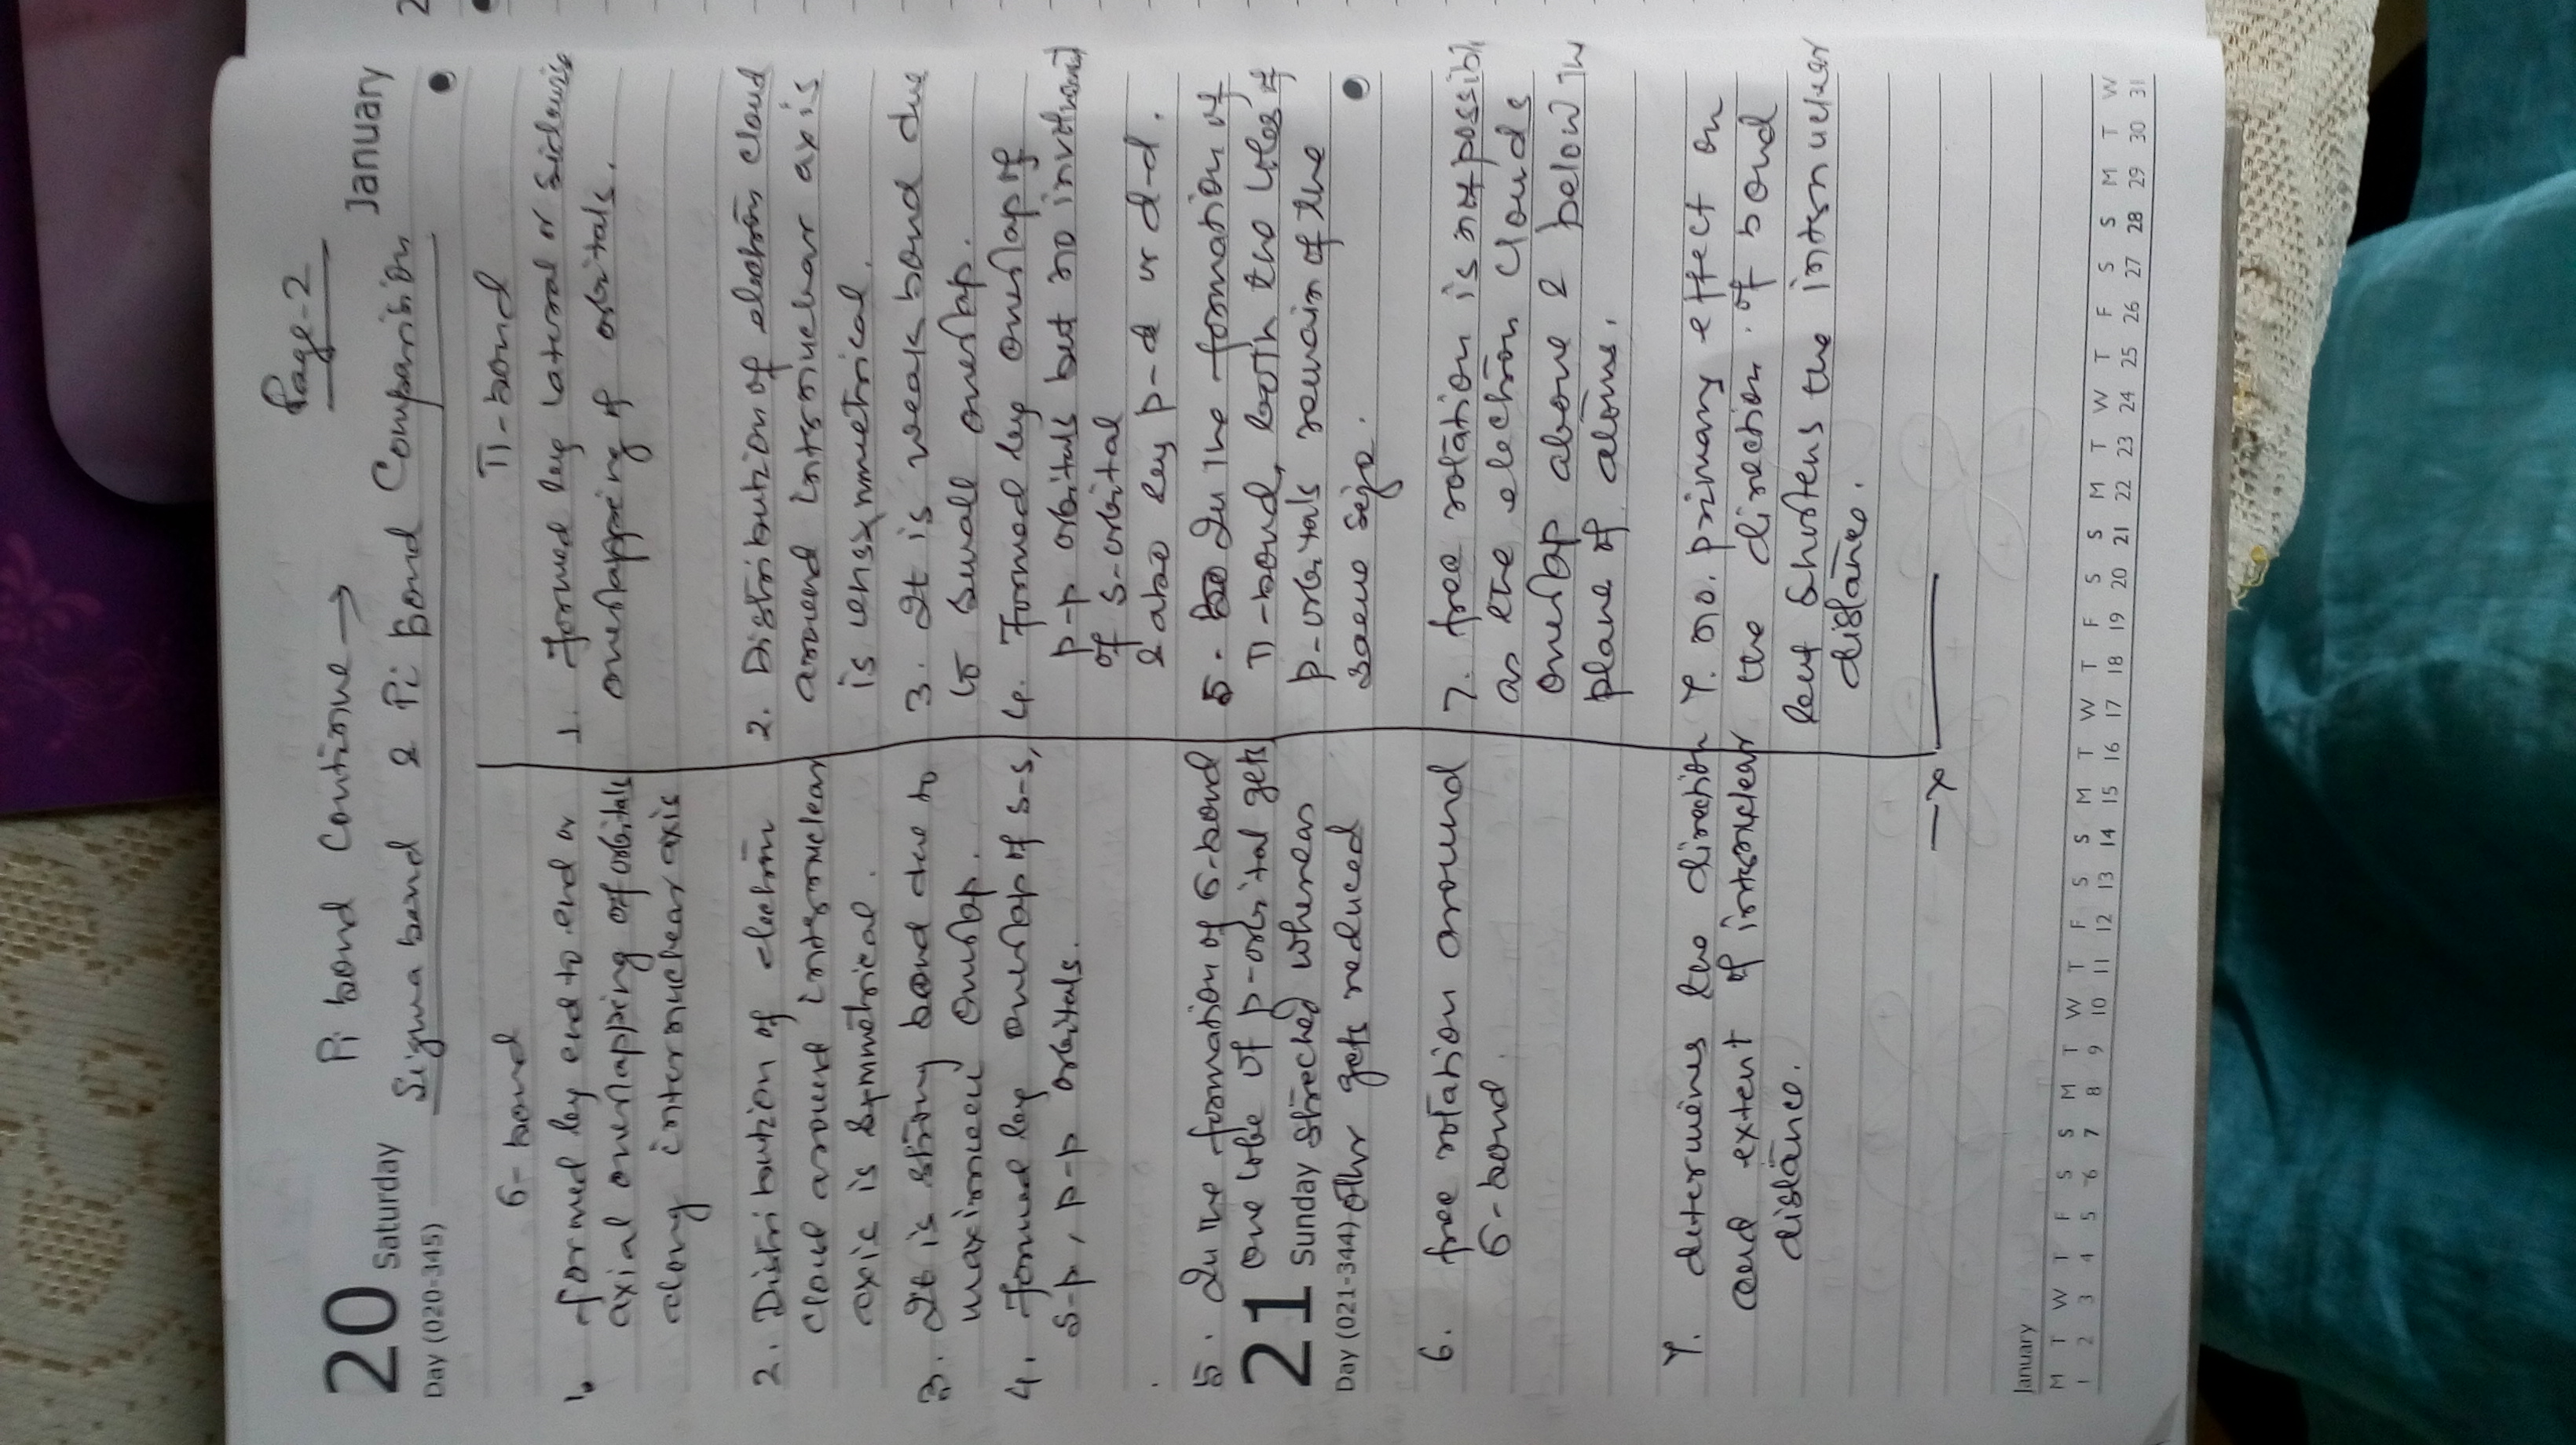 Page-2
20 Saturday
Pi bond Continue →
January
Day (020-345)
Sigma bond & Pi Bond Comparision
6-bond
1. formed by end to end or
axial overlapping of orbitals
along internuclear axis
2. Distribution of electron
cloud around internuclear
axis is symmetrical.
3. It is strong bond due to
maximum overlap.
4. Formed by overlap of s-s,
s-p, p-p orbitals.
5. In the formation of 6-bond
one lobe of p-orbital gets
streched whereas
other gets reduced
21 Sunday
Day (021-344)
6. free rotation around
6-bond.
7. determines the direction
and extent of internuclear
distance.
π-bond
1. formed by lateral or sidewise
overlapping of orbitals.
2. Distribution of electron cloud
around internuclear axis
is unsymmetrical.
3. It is weak bond due
to small overlap.
4. Formed by overlap of
p-p orbitals but no
of s-orbital
& also by p-d or d-d.
5. In the formation of
π-bond, both the lobes of
p-orbitals remain of the
same
7. free rotation is not possibl
as the electron clouds
overlap above & below
plane of atoms.
7. no. primary effect on
the direction of bond
but shortens the internuclear
distance.
—x
January
M T W T F S S M T W T F S S M T W T F S S M T W T F S S M T W
1 2 3 4 5 6 7 8 9 10 11 12 13 14 15 16 17 18 19 20 21 22 23 24 25 26 27 28 29 30 31